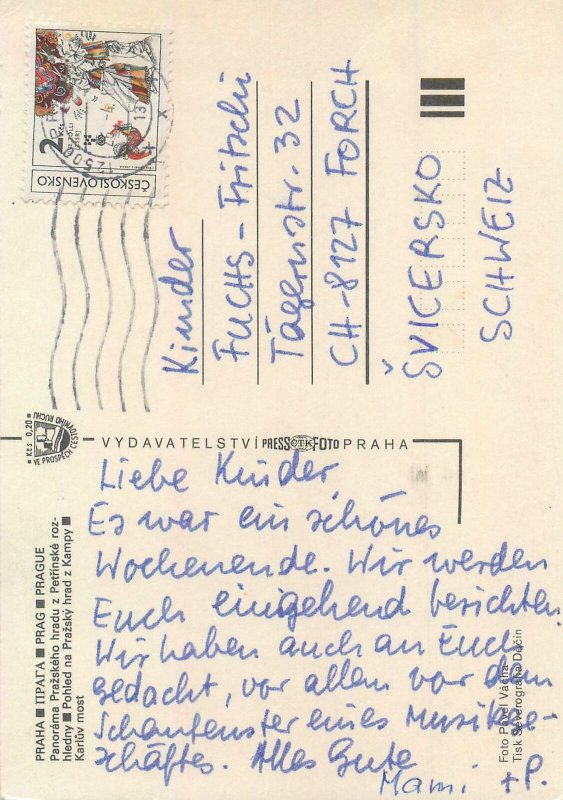 2 Kčs
ČESKOSLOVENSKO
Kinder
FUCHS-Fritschi
Tägernstr. 32
CH-8127 FORCH
ŠVICERSKO
SCHWEIZ
Kčs 0,20
VE PROSPĚCH CESTOVNÍHO RUCHU
VYDAVATELSTVÍ PRESSČTKFOTO PRAHA
Liebe Kinder,
Es war ein schönes
Wochenende. Wir werden
Euch eingehend berichten.
Wir haben auch an Euch
gedacht, vor allem vor dem
Schaufenster eines Musikge-
schäftes. Alles Gute
Mami + P.
PRAHA ■ ПРАГА ■ PRAG ■ PRAGUE
Panoráma Pražského hradu z Petřínské roz-
hledny ■ Pohled na Pražský hrad z Kampy ■
Karlův most
Foto Pavel Vácha
Tisk Severografia Děčín